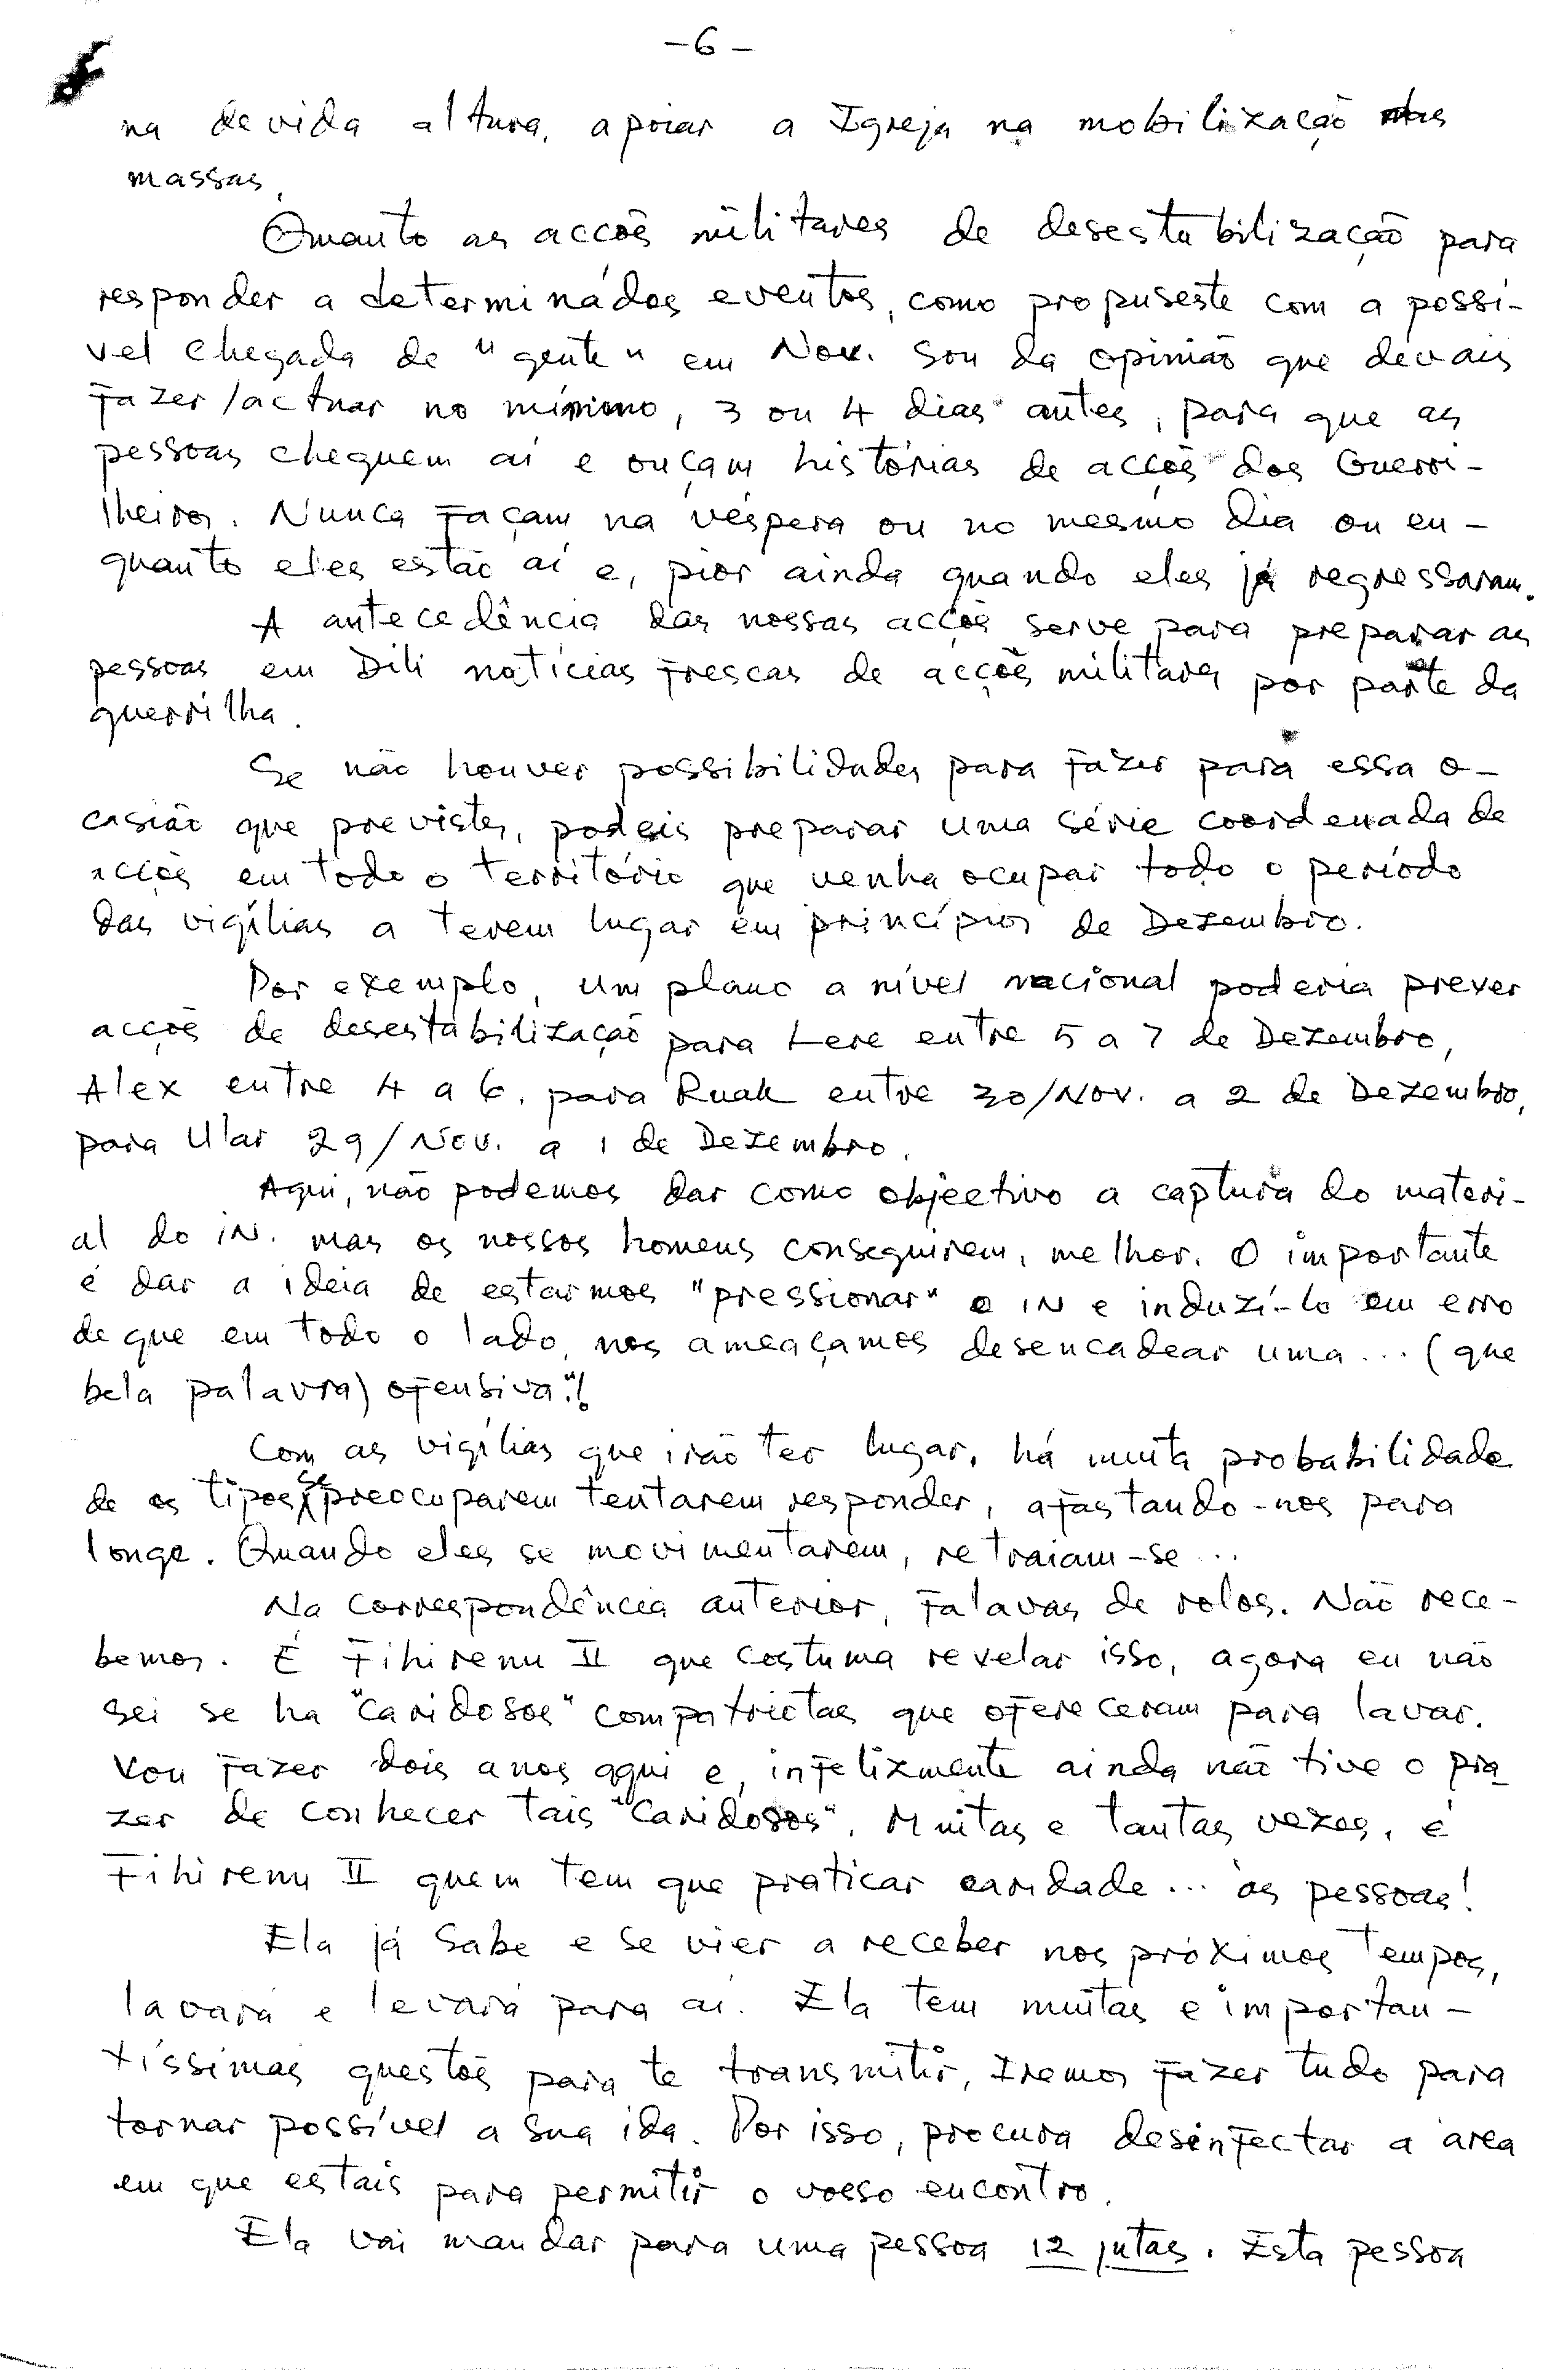 -6-
na devida altura, apoiar a Igreja na mobilização das
massas.
Quanto as acções militares de desestabilização para
responder a determinados eventos, como propuseste com a possí-
vel chegada de "gente" em Nov. Sou da opinião que devais
fazer/actuar no mínimo, 3 ou 4 dias antes, para que as
pessoas cheguem aí e ouçam histórias de acções dos Guerri-
lheiros. Nunca façam na véspera ou no mesmo dia ou en-
quanto eles estão aí e, pior ainda quando eles já regressaram.
A antecedência das nossas acções serve para preparar as
pessoas em Dili notícias frescas de acções militares por parte da
guerrilha.
Se não houver possibilidades para fazer para essa o-
casião que previstes, podeis preparar uma série coordenada de
acções em todo o território que venha ocupar todo o período
das vigílias a terem lugar em princípios de Dezembro.
Por exemplo, um plano a nível nacional poderia prever
acções de desestabilização para Lere entre 5 a 7 de Dezembro,
Alex entre 4 a 6, para Ruak entre 30/Nov. a 2 de Dezembro,
para Ular 29/Nov. a 1 de Dezembro.
Aqui, não podemos dar como objectivo a captura do materi-
al do iN. mas os nossos homens conseguirem, melhor. O importante
é dar a ideia de estarmos "pressionar" o IN e induzí-lo em erro
de que em todo o lado, nos ameaçamos desencadear uma... (que
bela palavra) ofensiva"!
Com as vigílias que irão ter lugar, há muita probabilidade
de os tipos se preocuparem tentarem responder, afastando-nos para
longe. Quando eles se movimentarem, retraiam-se...
Na correspondência anterior, falavas de rolos. Não rece-
bemos. É Fihirenu II que costuma revelar isso, agora eu não
sei se ha "caridosos" compatriotas que ofereceram para lavar.
Vou fazer dois anos aqui e, infelizmente ainda não tive o pra
zer de conhecer tais "caridosos". Muitas e tantas vezes, é
Fihirenu II quem tem que praticar caridade... às pessoas!
Ela já sabe e se vier a receber nos próximos tempos,
lavará e levará para aí. Ela tem muitas e importan-
tíssimas questões para te transmitir, Iremos fazer tudo para
tornar possível a sua ida. Por isso, procura desinfectar a área
em que estais para permitir o vosso encontro.
Ela vai mandar para uma pessoa 12 jutas. Esta pessoa